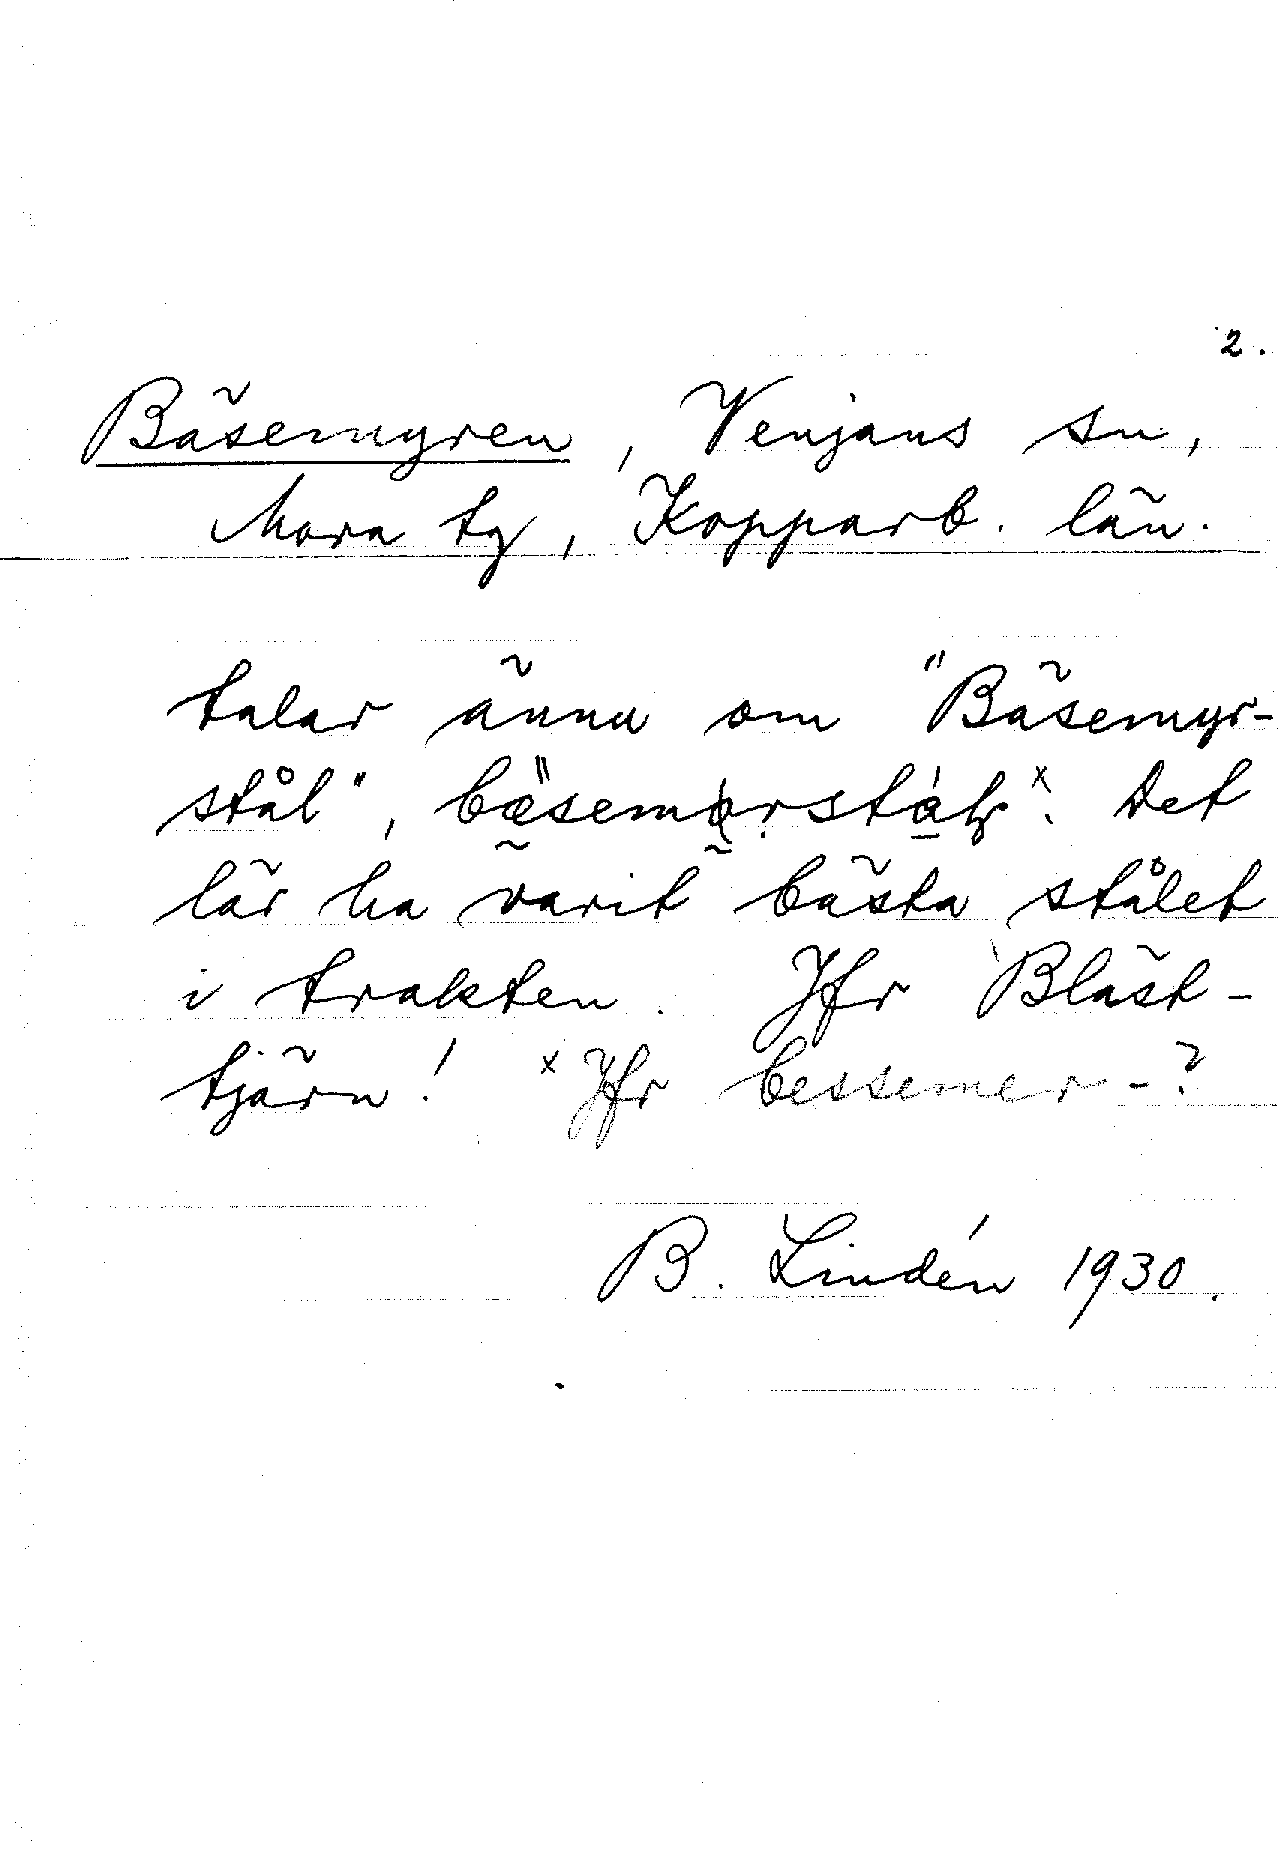 2.
Bäsemyren, Venjans sn,
Mora tg, Kopparb. län.
talar ännu om "Bäsemyr-
stål", Det
lär ha varit bästa stålet
i trakten. Jfr Bläst-
tjärn! x Jfr bessemer-?
B. Lindén 1930.